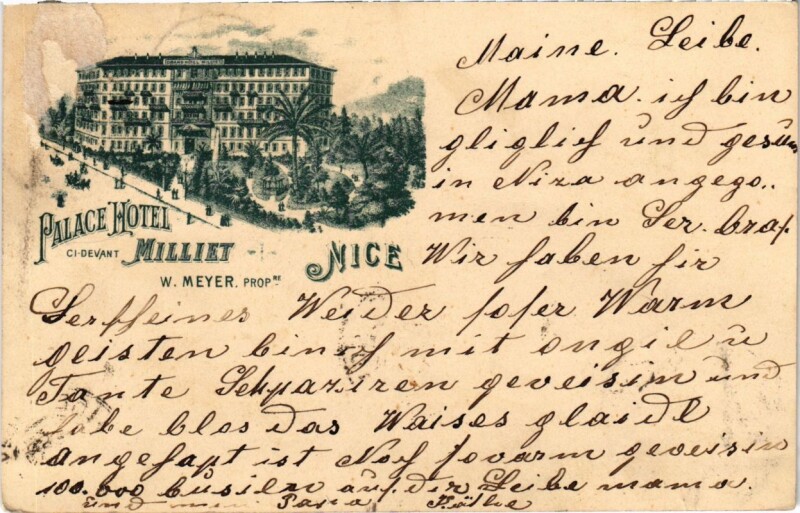 GRAND HOTEL MILLIET
PALACE HOTEL
CI-DEVANT MILLIET
NICE
W. MEYER. PROP.RE
Maine. Leibe.
Mama. ich bin
gliglich und gesun
in Niza angego..
men bin Ser. braf.
Wir haben hir
Ser scheines Weider so ser Warm
geisten bin ich mit ongil u
Tante Schpaziren geveisin und
habe blos das Waises glaidl
angehapt ist Noch so varm geveisin
100.000 busilen auf dir Leibe mama.
und mein Papa Käthe